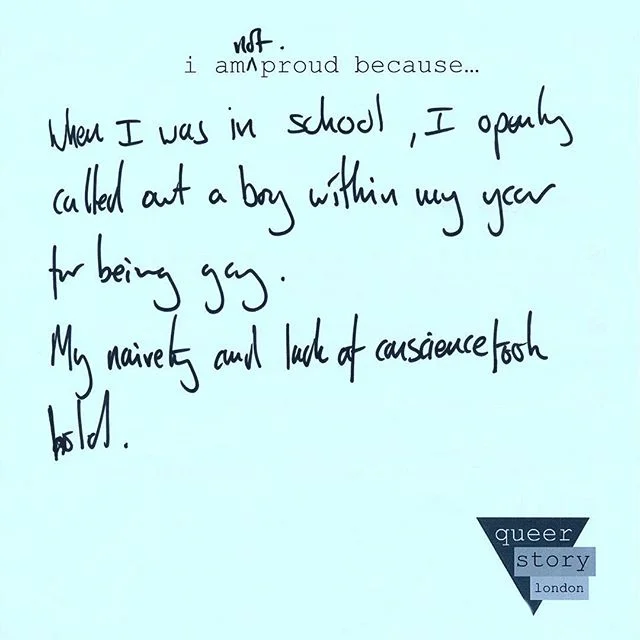 not.
i am^proud because…
When I was in school, I openly
called out a boy within my year
for being gay.
My naivety and lack of conscience took
hold.
queer
story
london